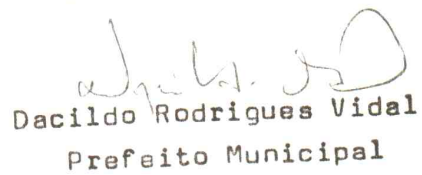 Dacildo Rodrigues Vidal
Prefeito Municipal